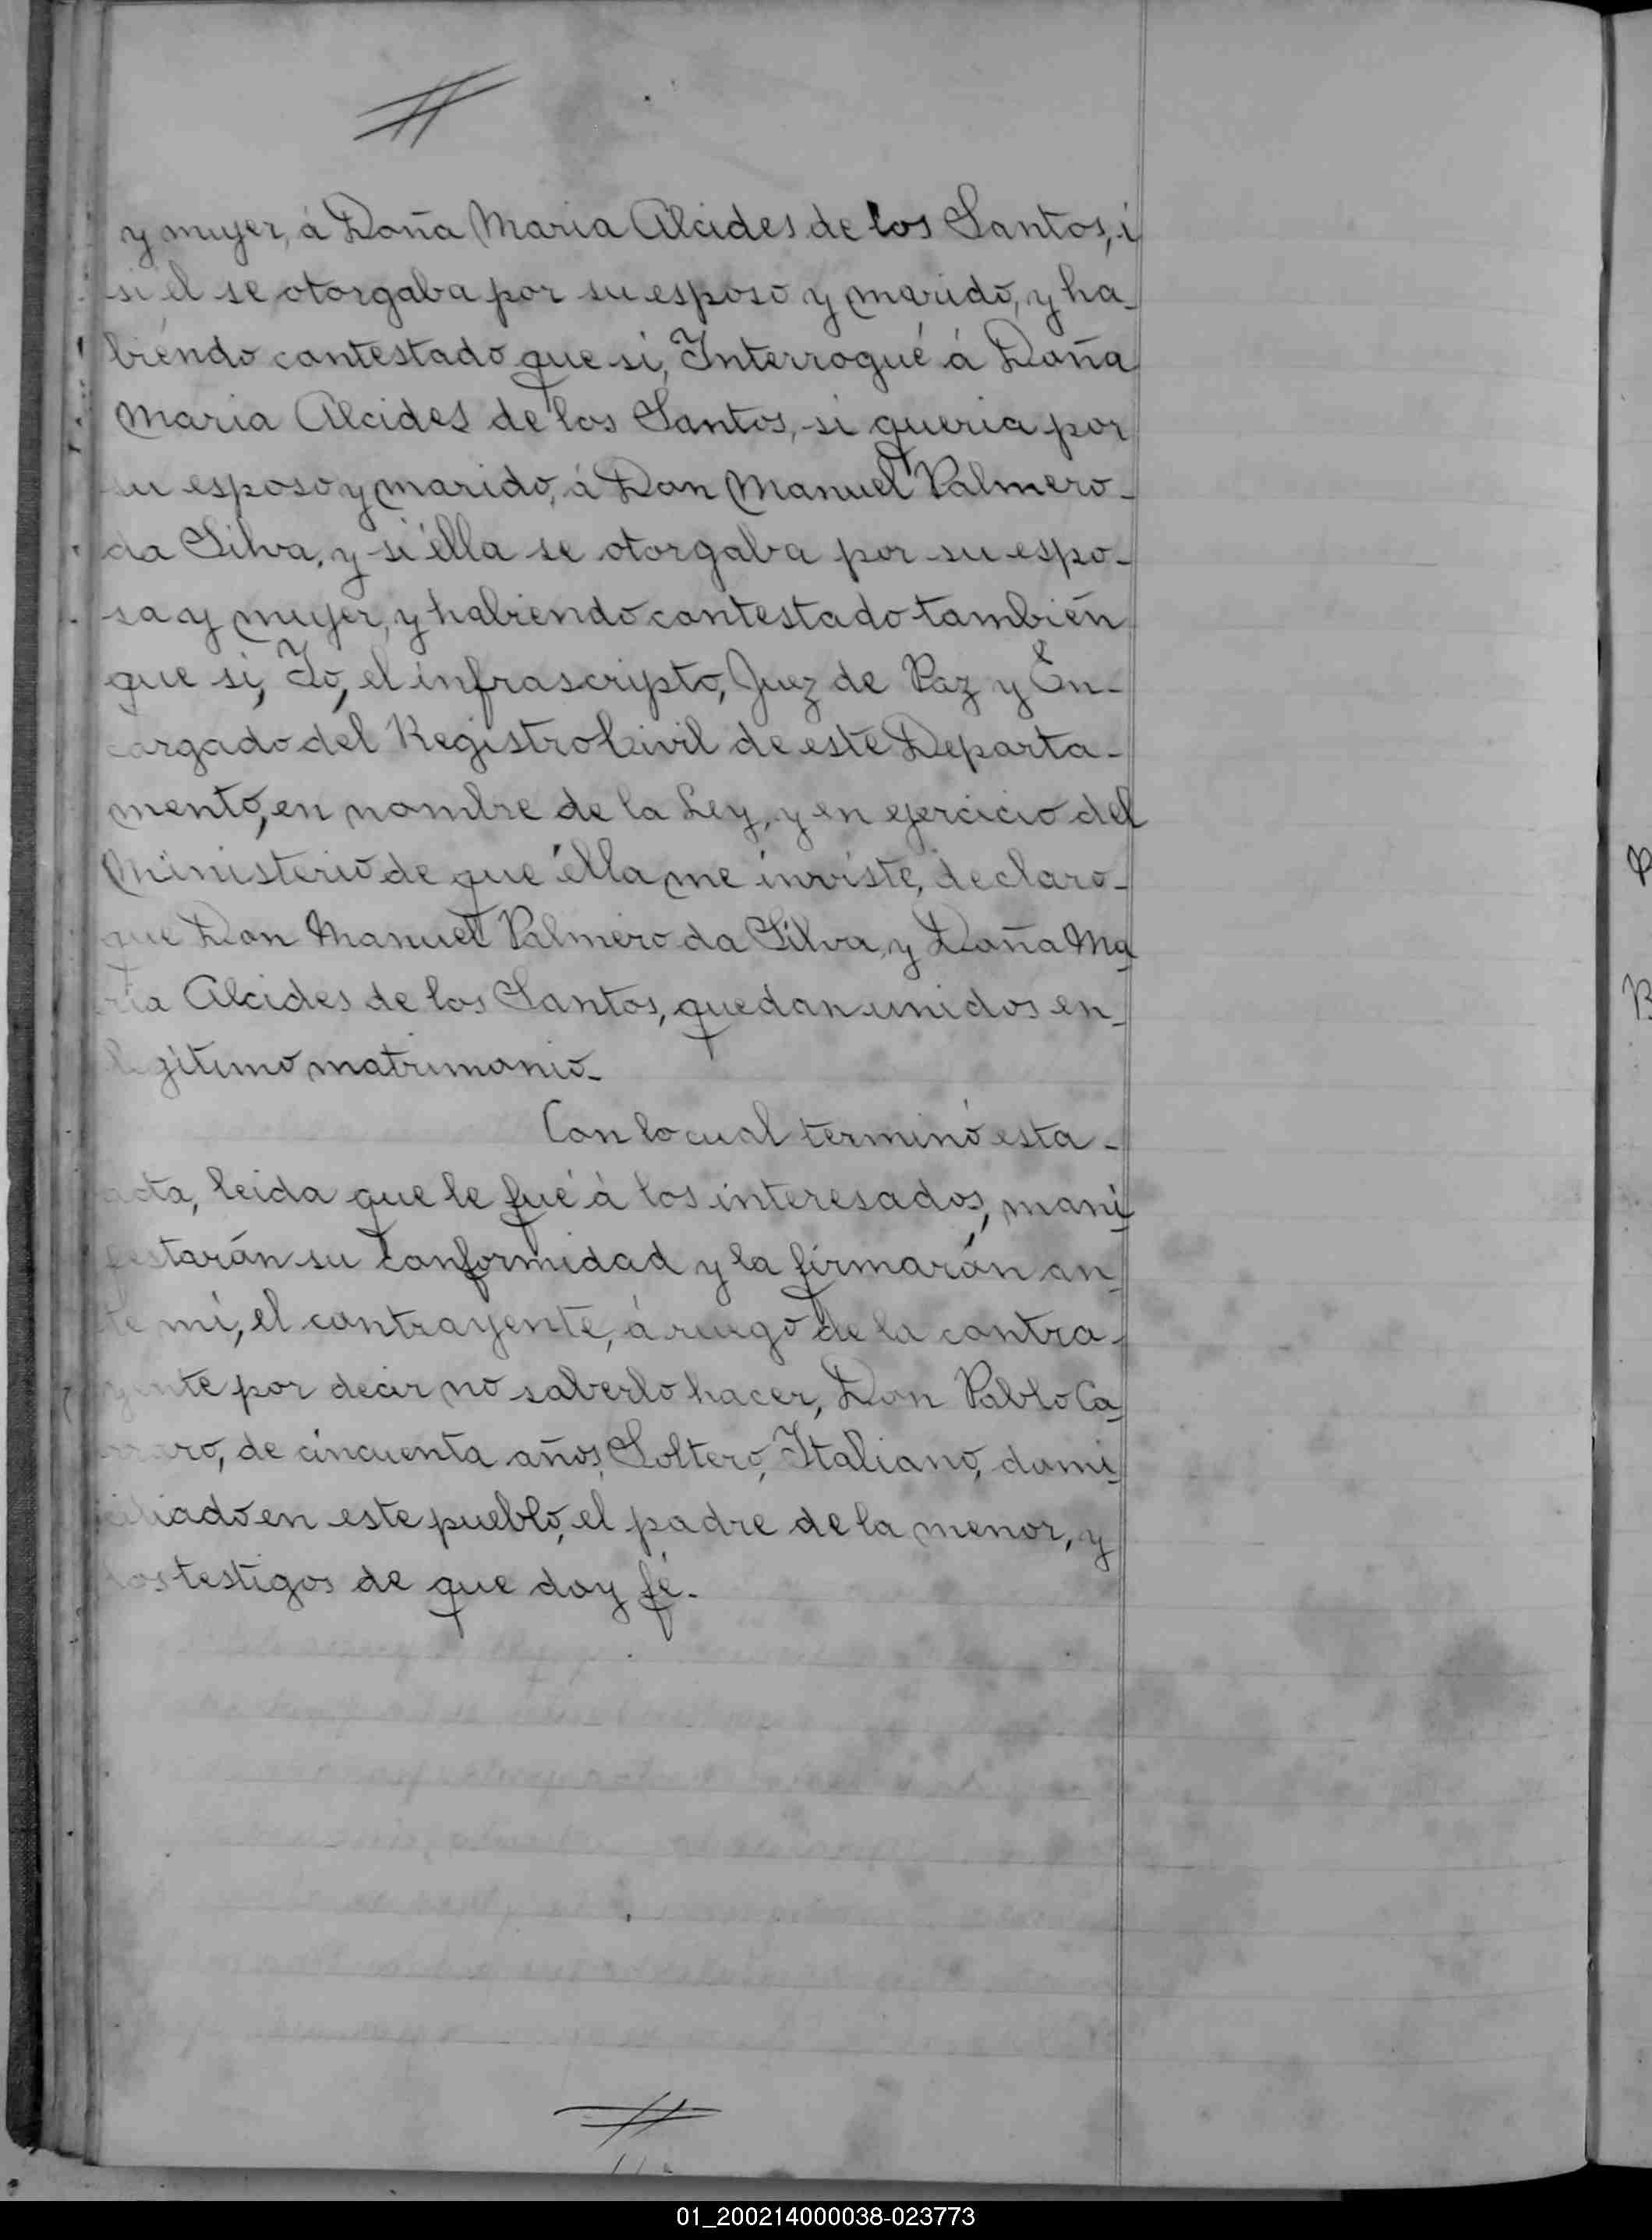 y mujer, á Doña Maria Alcides de los Santos, i
si él se otorgaba por su esposo y marido, y ha-
biendo contestado que si, Interrogué á Doña
Maria Alcides de los Santos, si queria por
su esposo y marido, á Don Manuel Palmero-
da Silva, y si élla se otorgaba por su espo-
sa y mujer, y habiendo contestado también
que si, Yo, el infrascripto, Juez de Paz y En-
cargado del Registro Civil de este Departa-
mento, en nombre de la Ley, y en ejercicio del
Ministerio de que élla me inviste, declaro-
que Don Manuel Palmero da Silva, y Doña Ma
ria Alcides de los Santos, quedan unidos en-
legítimo matrimonio-
Con lo cual terminó esta-
acta, leida que le fué á los interesados, mani
festarán su conformidad y la firmarán an
te mi, el contrayente, á ruego de la contra-
yente por decir no saberlo hacer, Don Pablo Ca
de cincuenta años, Soltero, Italiano, domi
ciliado en este pueblo, el padre de la menor, y
los testigos de que doy fé.
01_200214000038-023773